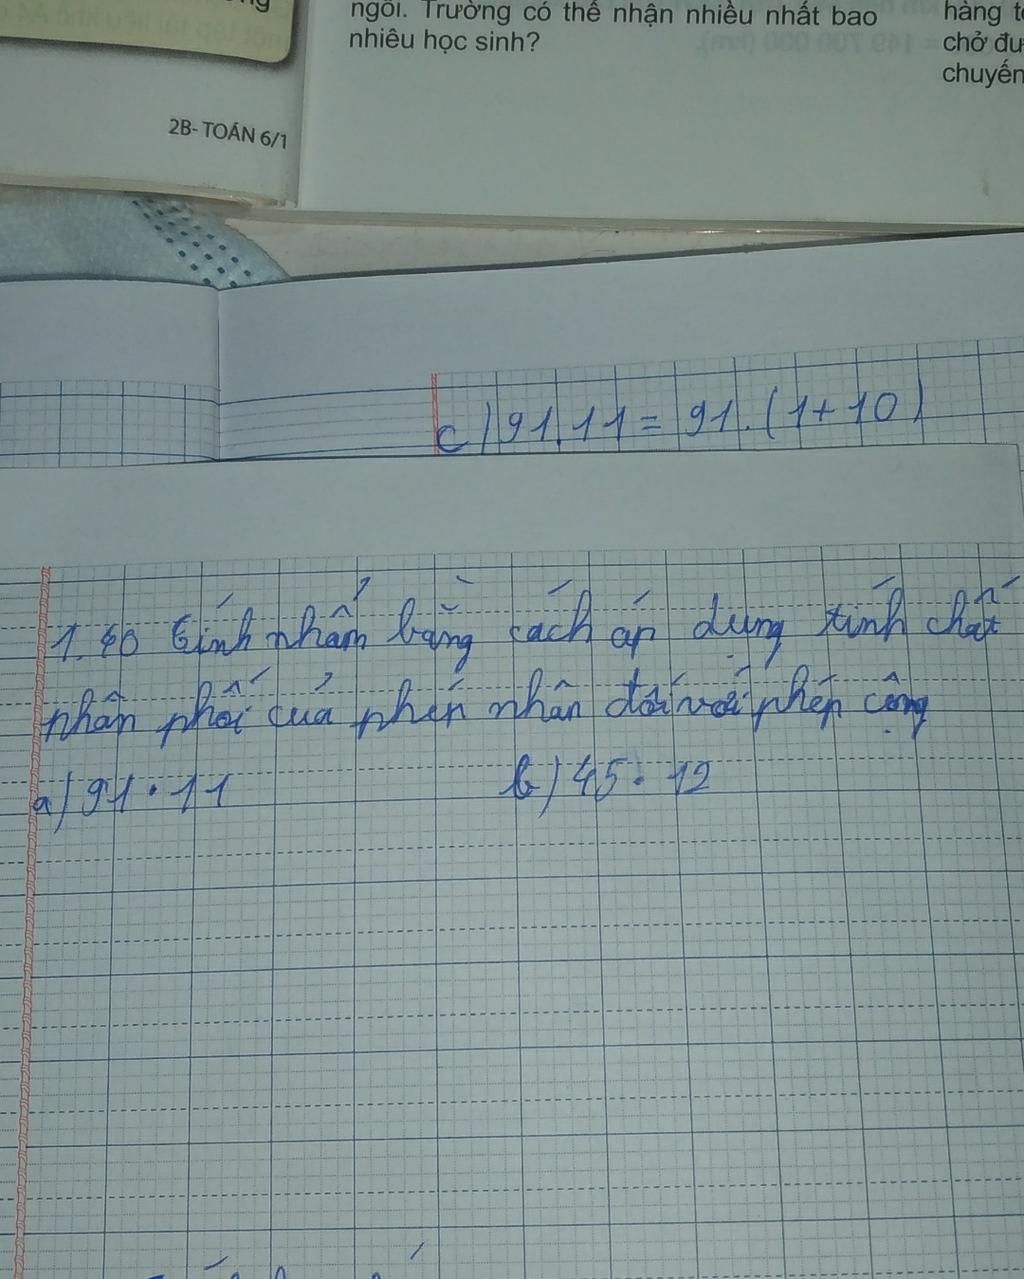 ngồi. Trường có thể nhận nhiều nhất bao
nhiêu học sinh?
chở đư
chuyến
2B- TOÁN 6/1
c) 91.11 = 91.(1+10)
1.40 tính nhẩm bằng cách áp dụng tính chất
phân phối của phép nhân đối với phép cộng
a) 91 . 11
b) 45 . 12